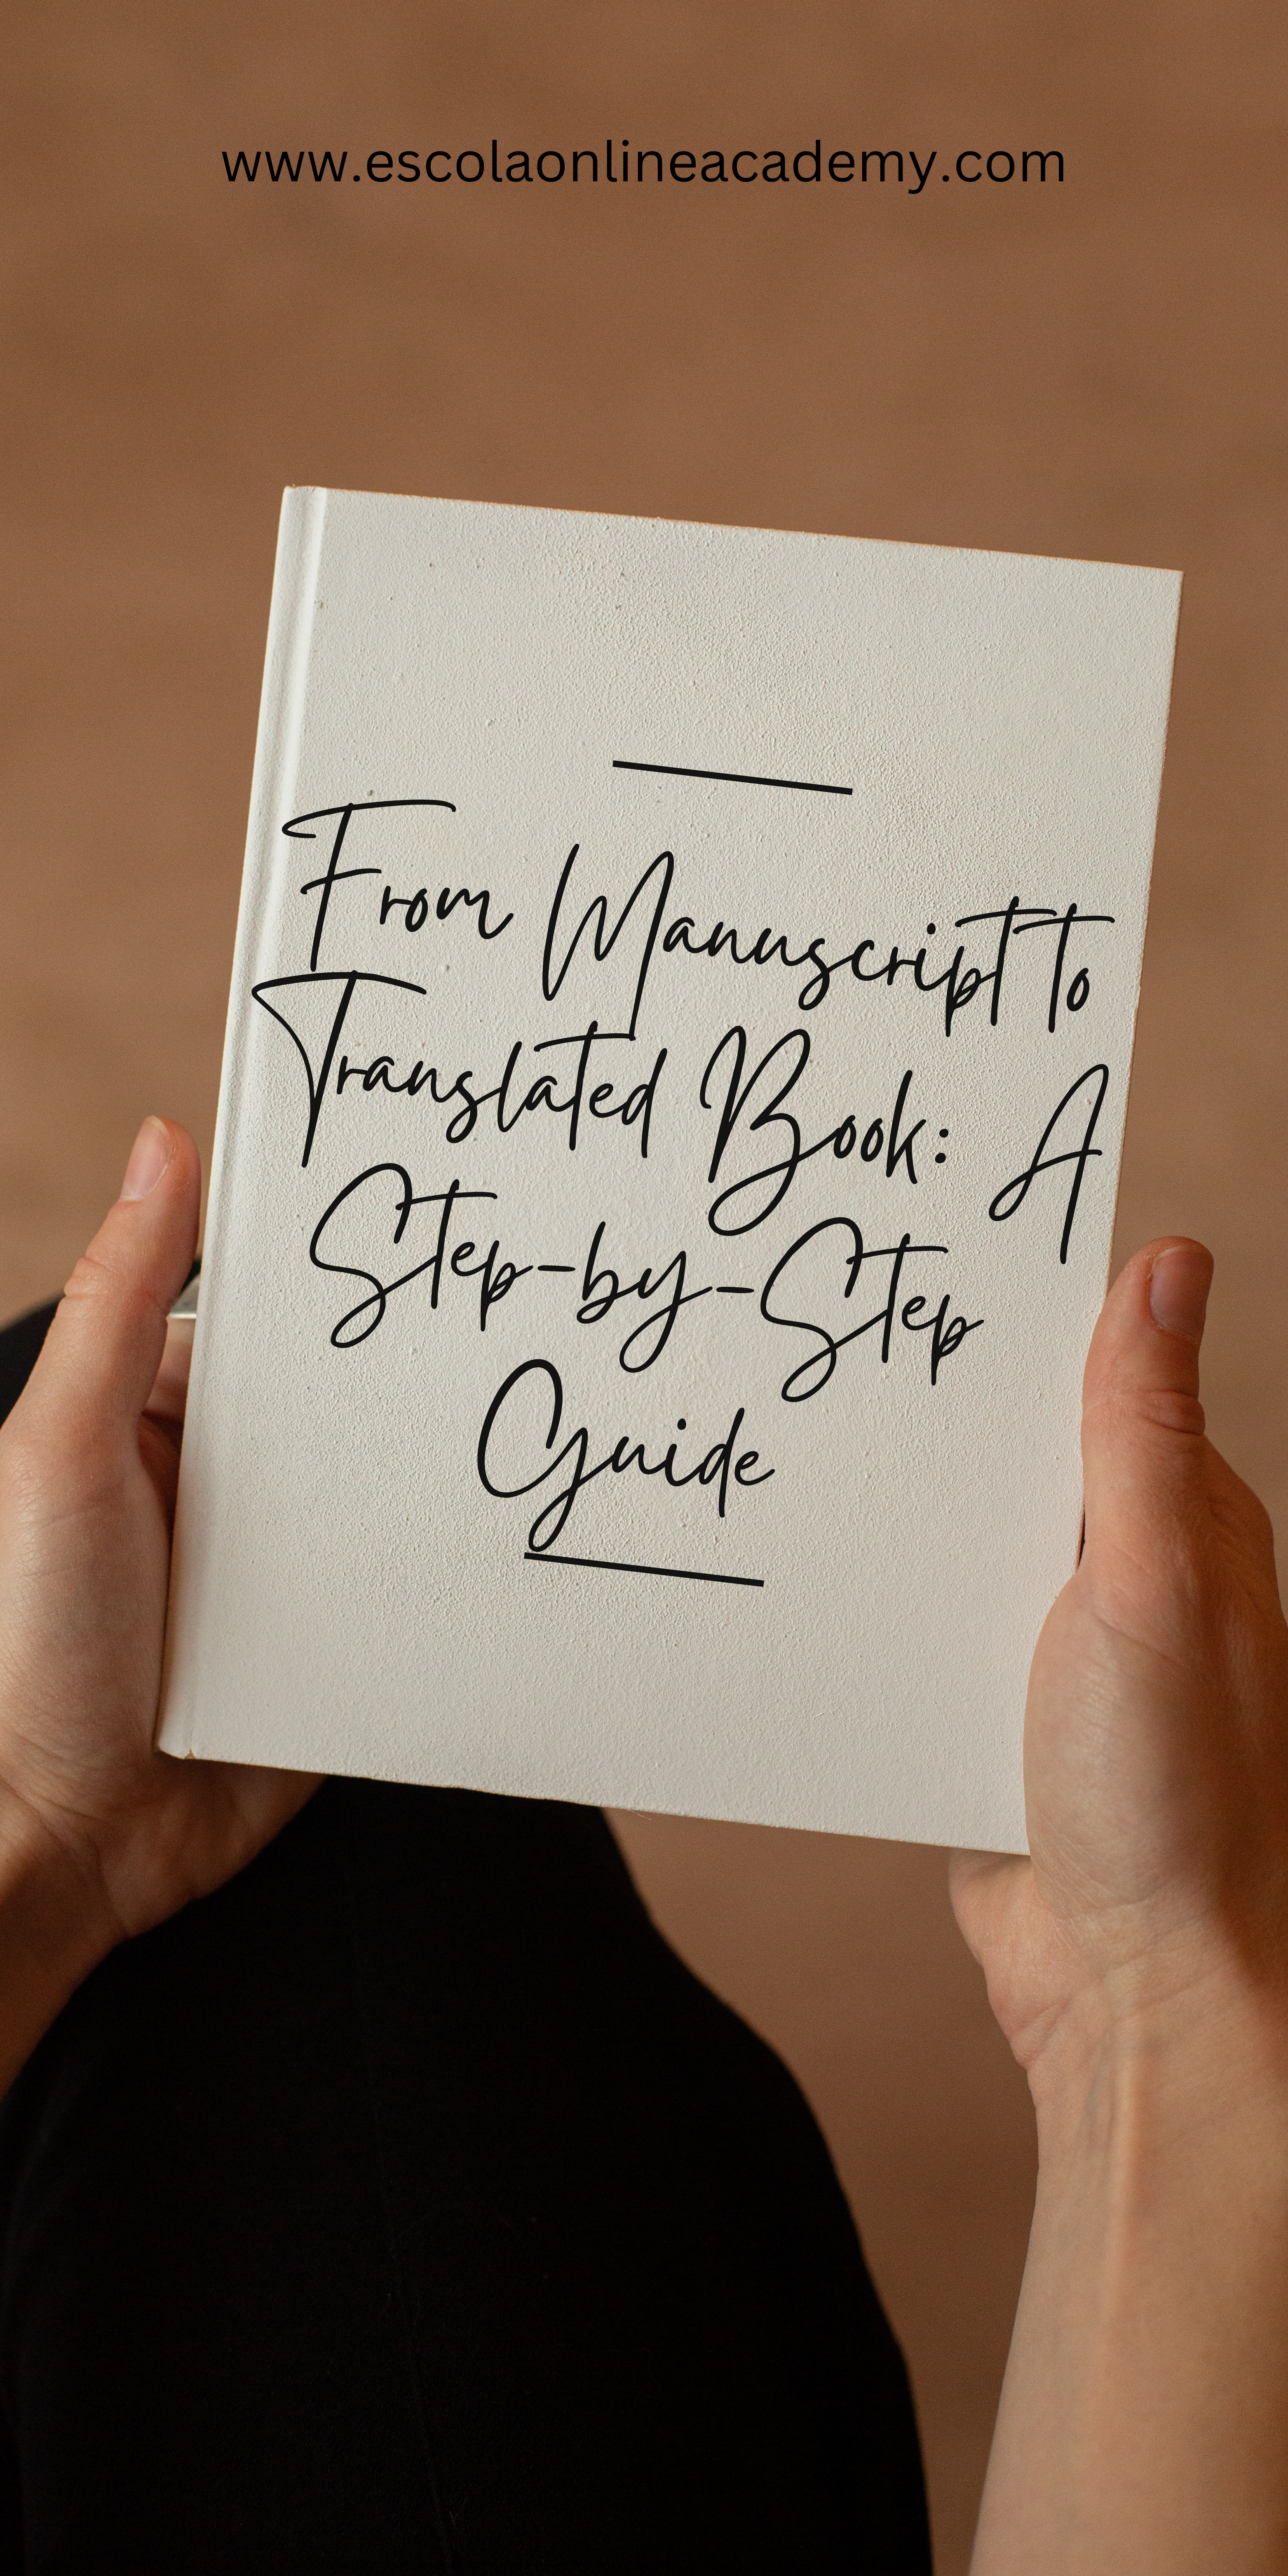 www.escolaonlineacademy.com
From Manuscript to
Translated Book: A
Step-by-Step
Guide